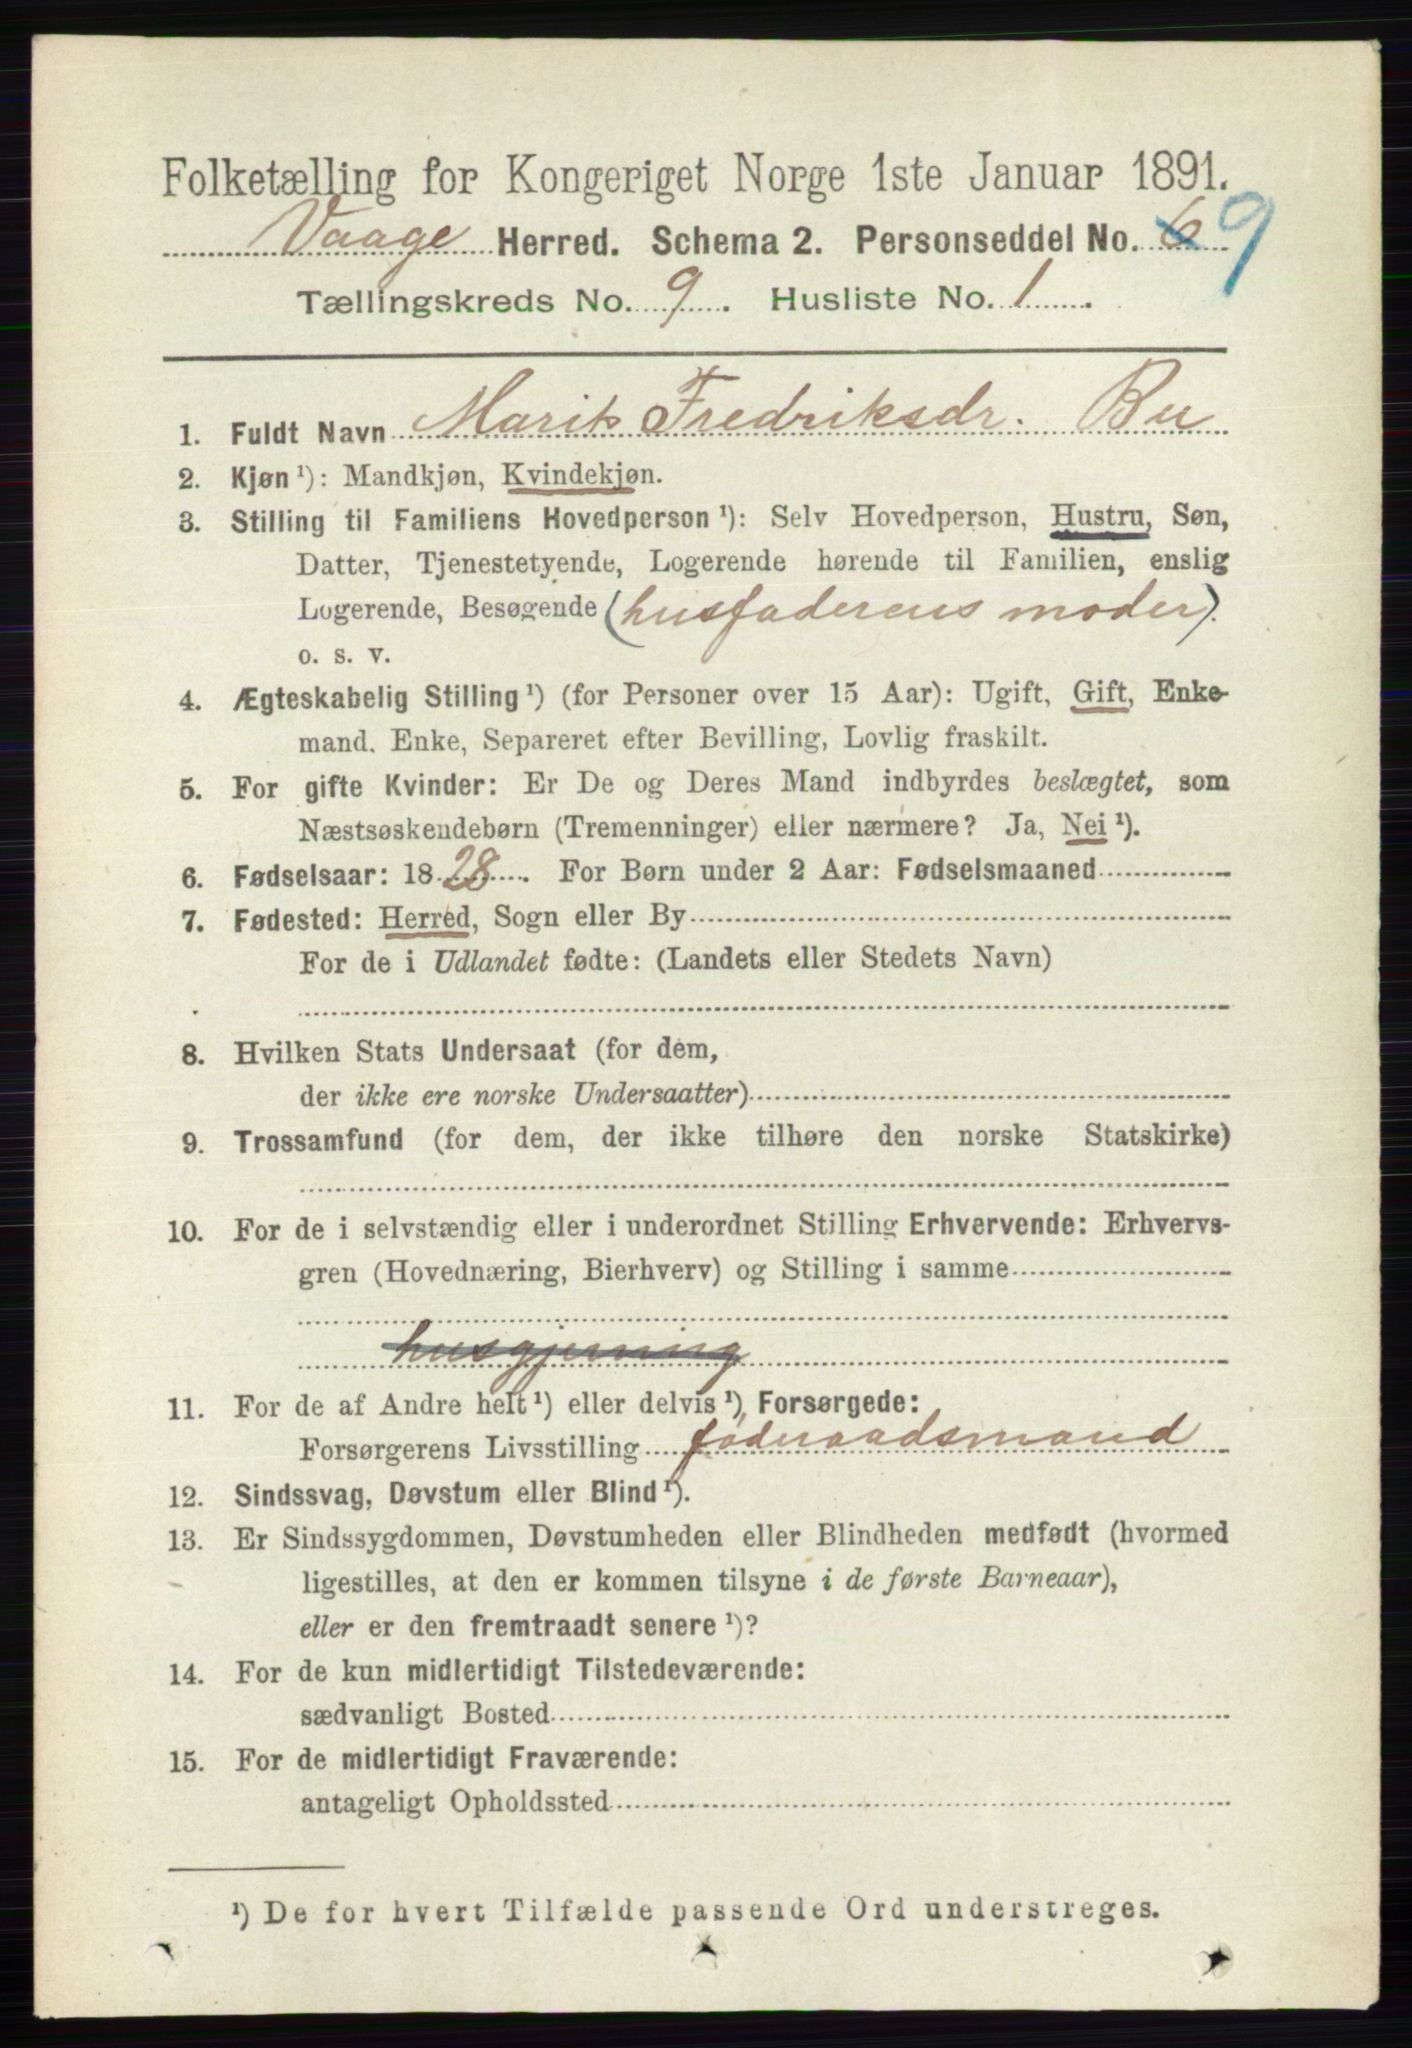 Folketælling for Kongeriget Norge 1ste Januar 1891.
Vaage Herred. Schema 2. Personseddel No. 6 9
Tællingskreds No. 9. Husliste No. 1.
1. Fuldt Navn Marit Fredriksdr. Bu
2. Kjøn ¹): Mandkjøn, Kvindekjøn.
3. Stilling til Familiens Hovedperson ¹): Selv Hovedperson, Hustru, Søn,
Datter, Tjenestetyende, Logerende hørende til Familien, enslig
Logerende, Besøgende (husfaderens moder).
o. s. v.
4. Ægteskabelig Stilling ¹) (for Personer over 15 Aar): Ugift, Gift, Enke-
mand, Enke, Separeret efter Bevilling, Lovlig fraskilt.
5. For gifte Kvinder: Er De og Deres Mand indbyrdes beslægtet, som
Næstsøskendebørn (Tremenninger) eller nærmere? Ja, Nei ¹).
6. Fødselsaar: 1828. For Børn under 2 Aar: Fødselsmaaned
7. Fødested: Herred, Sogn eller By
For de i Udlandet fødte: (Landets eller Stedets Navn)
8. Hvilken Stats Undersaat (for dem,
der ikke ere norske Undersaatter)
9. Trossamfund (for dem, der ikke tilhøre den norske Statskirke)
10. For de i selvstændig eller i underordnet Stilling Erhvervende: Erhvervs-
gren (Hovednæring, Bierhverv) og Stilling i samme
husgjerning
11. For de af Andre helt ¹) eller delvis ¹) Forsørgede:
Forsørgerens Livsstilling føderaadsmand
12. Sindssvag, Døvstum eller Blind ¹).
13. Er Sindssygdommen, Døvstumheden eller Blindheden medfødt (hvormed
ligestilles, at den er kommen tilsyne i de første Barneaar),
eller er den fremtraadt senere ¹)?
14. For de kun midlertidigt Tilstedeværende:
sædvanligt Bosted
15. For de midlertidigt Fraværende:
antageligt Opholdssted
¹) De for hvert Tilfælde passende Ord understreges.